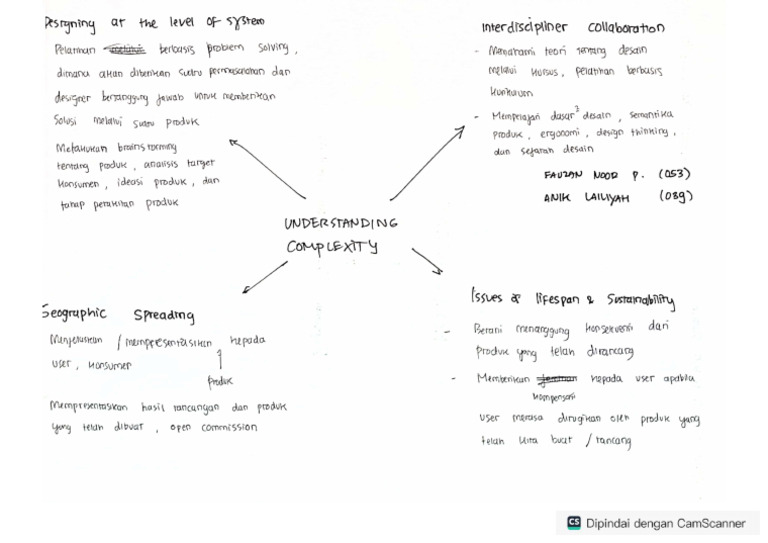 Designing at the level of system
Pelatihan berbasis problem solving,
dimana akan diberikan suatu permasalahan dan
designer bertanggung jawab untuk memberikan
Solusi melalui suatu produk
Melakukan brainstorming
tentang produk, analisis target
konsumen, ideasi produk, dan
tahap perakitan produk
Interdiscipliner collaboration
- Memahami teori tentang desain
melalui kursus, pelatihan berbasis
kurikulum
- Mempelajari dasar² desain, semantika
produk, ergonomi, design thinking,
dan sejarah desain
FAUZAN NOOR P. (053)
ANIK LAILIYAH (089)
UNDERSTANDING
COMPLEXITY
Geographic Spreading
Menjelaskan / mempresentasikan kepada
user, konsumen
produk
Mempresentasikan hasil rancangan dan produk
yang telah dibuat, open commission
Issues of lifespan & Sustainability
- Berani menanggung konsekuensi dari
produk yang telah dirancang
- Memberikan kepada user apabila
kompensasi
user merasa dirugikan oleh produk yang
telah kita buat / rancang
CS Dipindai dengan CamScanner